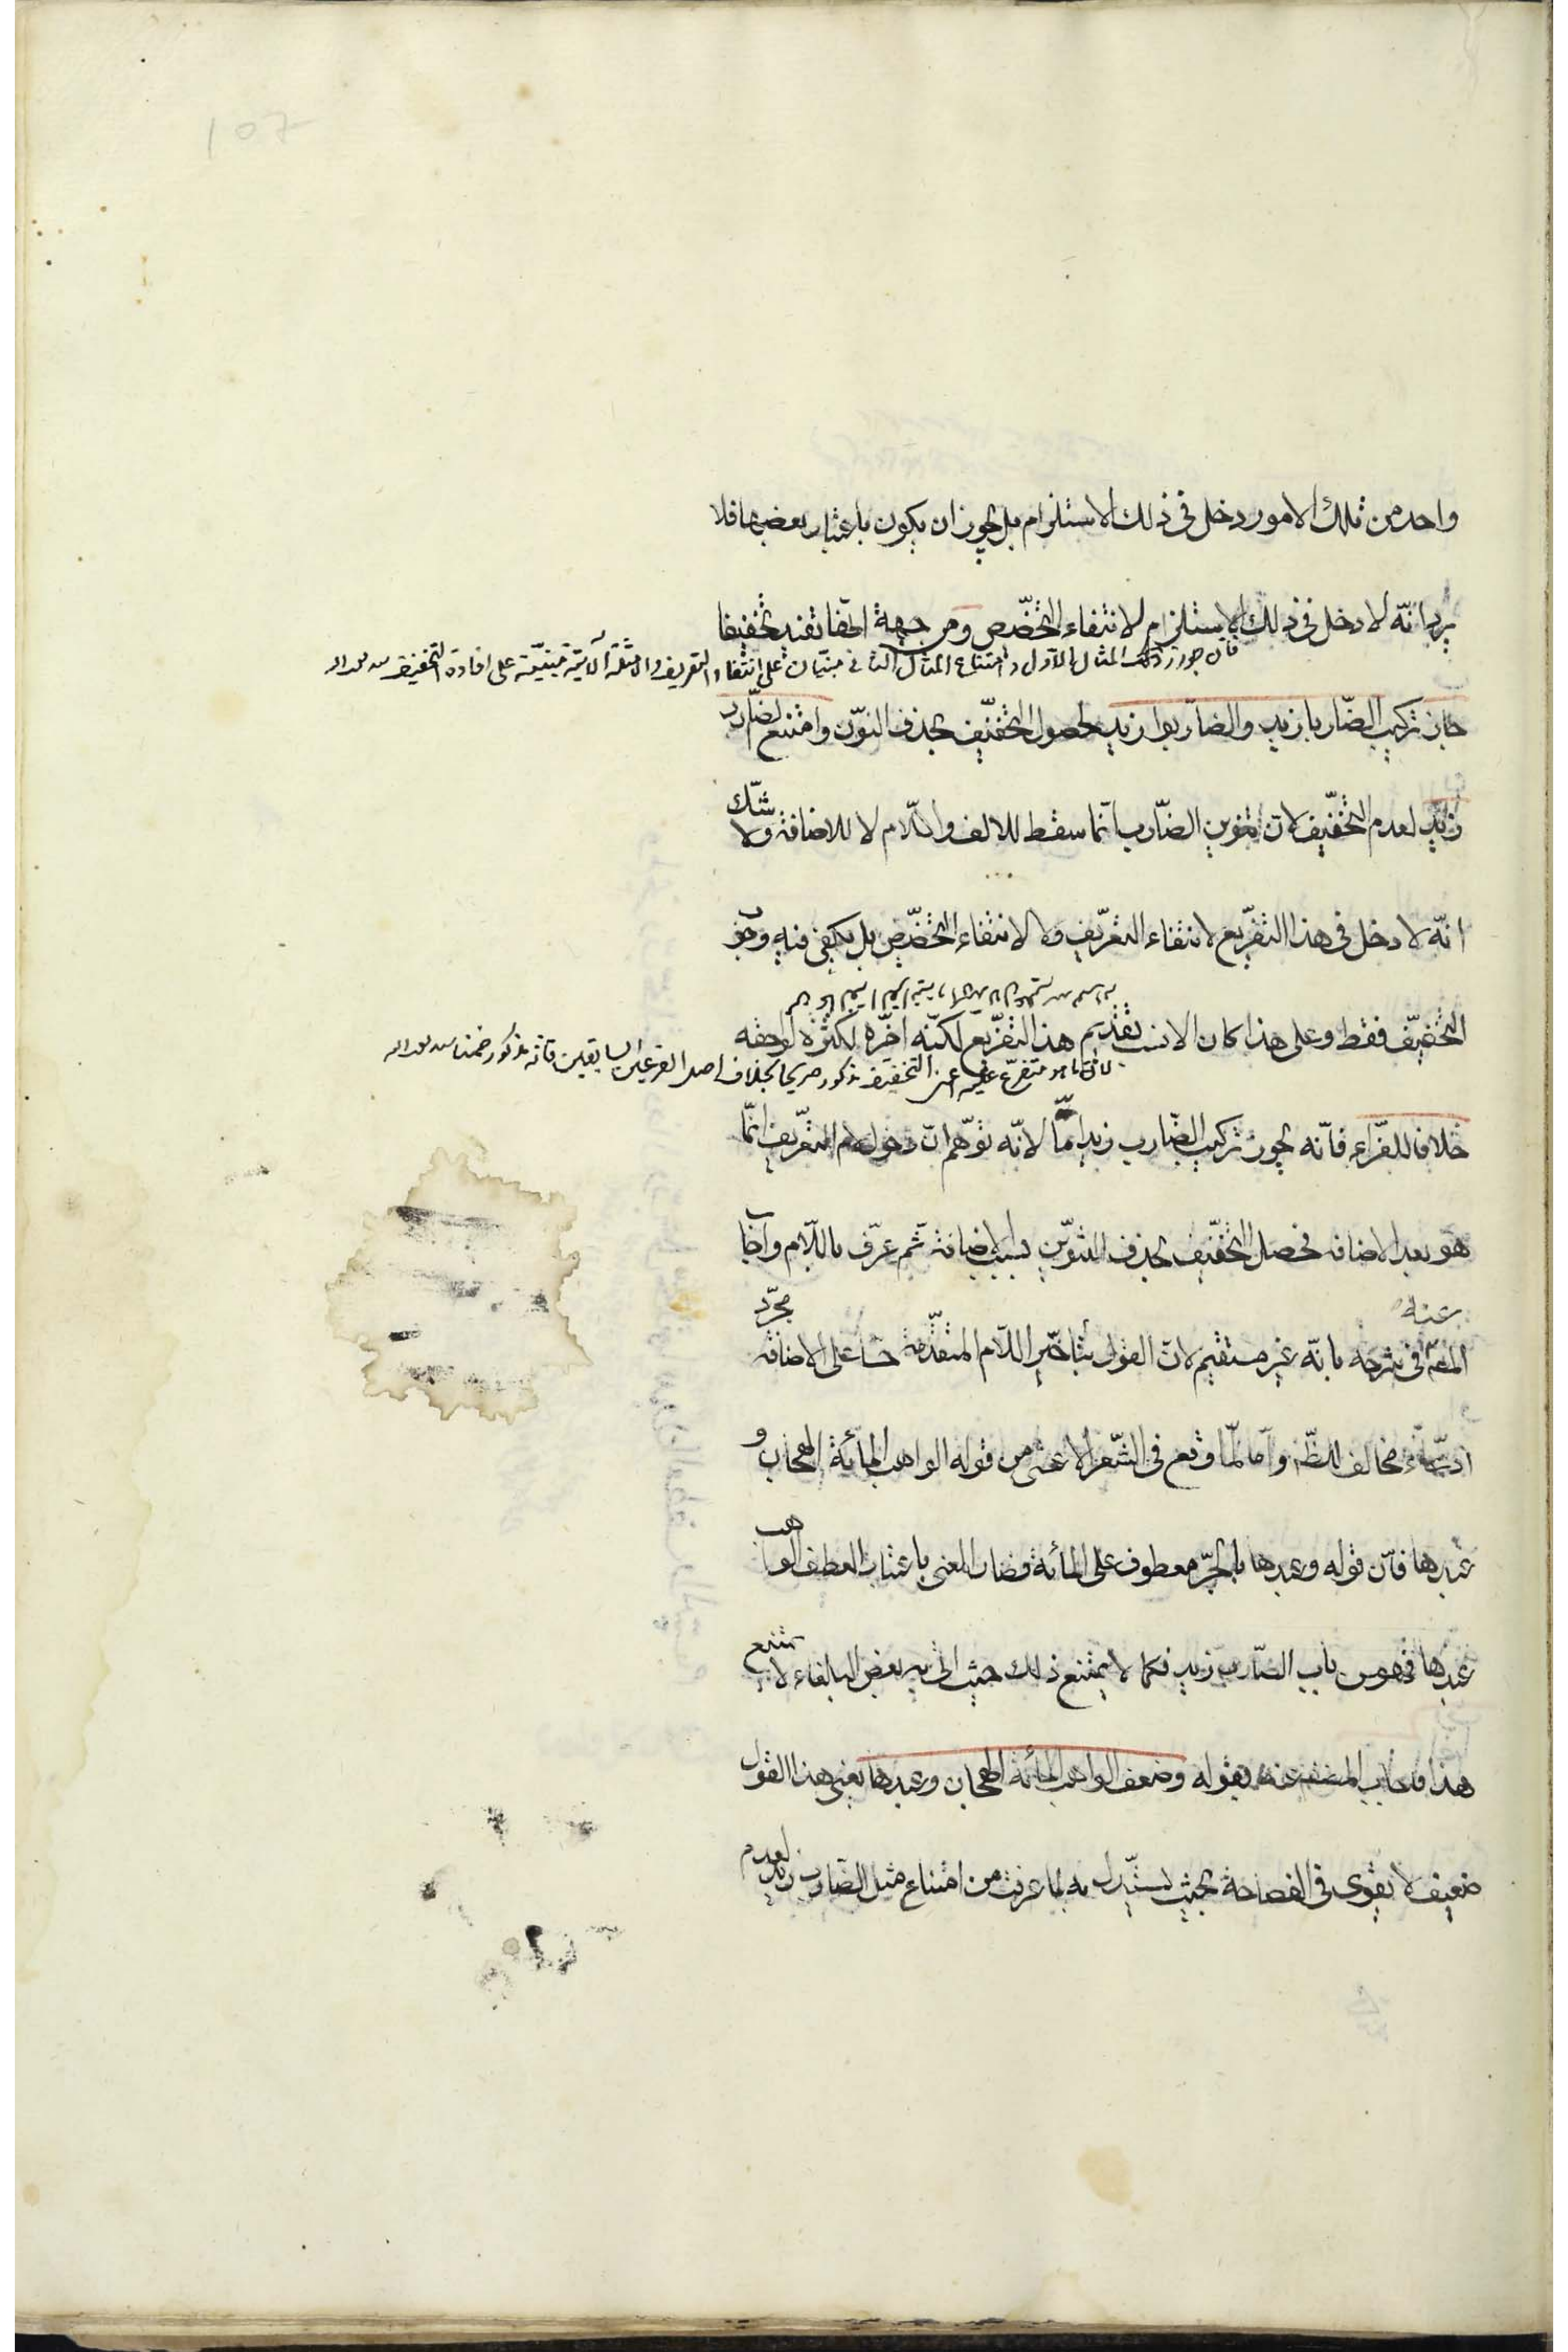 107
واحد من تلك الامور دخل فى ذلك الاستلزام بل يجوز ان يكون باعتبار بعضها فلا
يرد انّه لا دخل فى ذلك الاستلزام لانتفاء التخصّص ومن جهة انّها تفيد تخفيفا
فان جواز تركيب المثال الاول وامتناع المثال الثانى مبنيان على انتفاء التعريف والامثلة الآتية مبنيّة على افادة التخفيف
جاز تركيب الضّاربا زيد والضاربوا زيد لحصول التخفيف بحذف النوّن وامتنع الضّارب
زيد لعدم التخفيف لان تنوين الضّارب انّما سقط للالف واللّام لا للاضافة ولا شكّ
انّه لا دخل فى هذا التفريع لانتفاء التعريف ولا لانتفاء التخصّص بل يكفى فيه وجوب
التخفيف فقط وعلى هذا كان الانسب تقديم هذا التفريع لكنّه اخّره لكثرة لواحقه
لان ما هو متفرع عليه اعنى التخفيف مذكور صريحا بخلاف اصل الفرعين السابقين فانه مذكور ضمنا
خلافا للفرّاء فانّه يجوز تركيب الضّارب زيد امّا لانّه توهّم انّ دخول لام التعريف انّما
هو بعد الاضافة فحصل التخفيف بحذف التنوين بسبب الاضافة ثم عرّف باللّام واجاب
عنه المص فى شرحه بانّه غير مستقيم لان القول بتأخير اللّام المتقدّمة حسّا على الاضافة مجرّد
ادّعاء مخالف للظّاهر وامّا لما وقع فى الشّعر الاعشى من قوله الواهب المائة الهجان و
عبدها فانّ قوله وعبدها بالجرّ معطوف على المائة فصار المعنى باعتبار العطف الواهب
عبدها فهو من باب الضّارب زيد فكما لا يمتنع ذلك حيث اتى به بعض البلغاء لا يمتنع
هذا فاجاب المصنف عنه بقوله وضعف الواهب المائة الهجان وعبدها يعنى هذا القول
ضعيف لا يقوى فى الفصاحة بحيث يستدلّ به لما عرفت من امتناع مثل الضّارب زيد لعدم